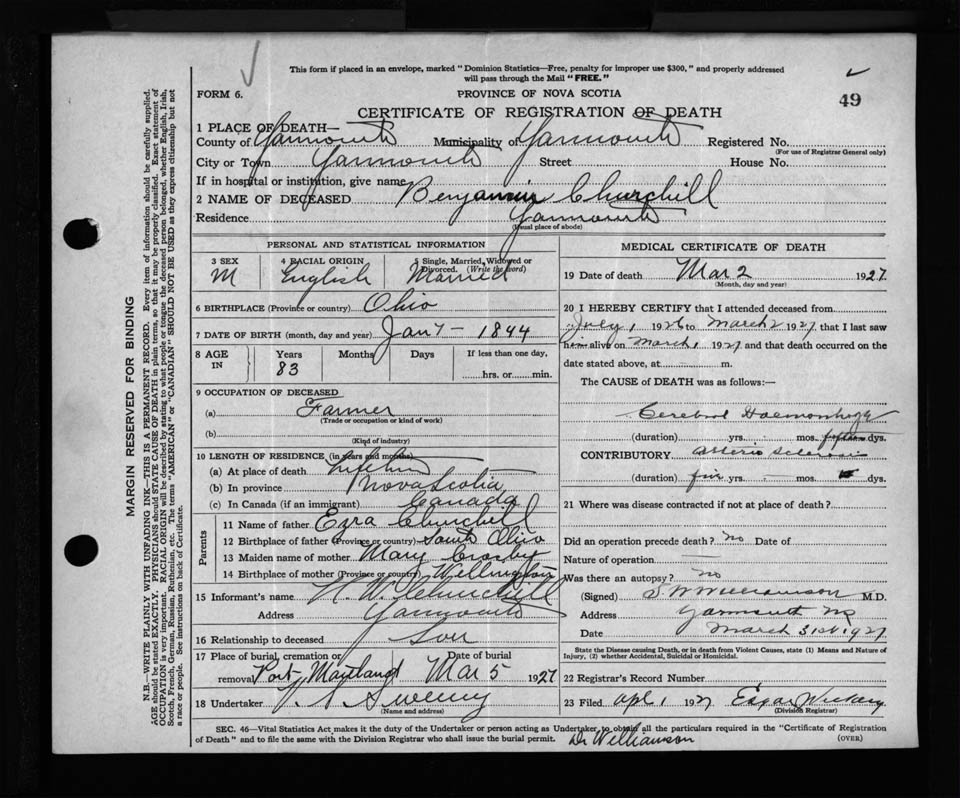 This form if placed in an envelope, marked "Dominion Statistics—Free, penalty for improper use $300," and properly addressed
will pass through the Mail "FREE."
FORM 6.
PROVINCE OF NOVA SCOTIA
49
CERTIFICATE OF REGISTRATION OF DEATH
1 PLACE OF DEATH—
County of Yarmouth Municipality of Yarmouth Registered No.
(For use of Registrar General only)
City or Town Yarmouth Street House No.
If in hospital or institution, give name
2 NAME OF DECEASED Benjamin Churchill
Residence Yarmouth
(Usual place of abode)
PERSONAL AND STATISTICAL INFORMATION
3 SEX 4 RACIAL ORIGIN 5 Single, Married, Widowed or Divorced. (Write the word)
M English Married
6 BIRTHPLACE (Province or country) Ohio
7 DATE OF BIRTH (month, day and year) Jan 7 - 1844
8 AGE IN Years Months Days If less than one day,
83 hrs. or min.
9 OCCUPATION OF DECEASED
(a) Farmer
(Trade or occupation or kind of work)
(b)
(Kind of industry)
10 LENGTH OF RESIDENCE (in years and months)
(a) At place of death
(b) In province Nova Scotia
(c) In Canada (if an immigrant) Canada
Parents
11 Name of father Ezra Churchill
12 Birthplace of father (Province or country) South Ohio
13 Maiden name of mother Mary Crosby
14 Birthplace of mother (Province or country) Wellington
15 Informant's name N. W. Churchill
Address Yarmouth
16 Relationship to deceased Son
17 Place of burial, cremation or removal Port Maitland Date of burial Mar 5 1927
18 Undertaker V. S. Sweeny
(Name and address)
MEDICAL CERTIFICATE OF DEATH
19 Date of death Mar 2 1927.
(Month, day and year)
20 I HEREBY CERTIFY that I attended deceased from
July 1 1926 to March 2 1927, that I last saw
him alive on March 1 1927 and that death occurred on the
date stated above, at m.
The CAUSE of DEATH was as follows:—
Cerebral Haemorrhage
(duration) yrs. mos. fifteen dys.
CONTRIBUTORY arterio sclerosis
(duration) five yrs. mos. dys.
21 Where was disease contracted if not at place of death?
Did an operation precede death? no Date of
Nature of operation
Was there an autopsy? no
(Signed) S. W. Williamson M.D.
Address Yarmouth NS
Date March 31st 1927
State the Disease causing Death, or in death from Violent Causes, state (1) Means and Nature of
Injury, (2) whether Accidental, Suicidal or Homicidal.
22 Registrar's Record Number
23 Filed Apl 1 1927
(Division Registrar)
SEC. 46—Vital Statistics Act makes it the duty of the Undertaker or person acting as Undertaker to obtain all the particulars required in the "Certificate of Registration
of Death" and to file the same with the Division Registrar who shall issue the burial permit.
Dr Williamson
(OVER)
MARGIN RESERVED FOR BINDING
N.B.—WRITE PLAINLY, WITH UNFADING INK—THIS IS A PERMANENT RECORD. Every item of information should be carefully supplied.
AGE should be stated EXACTLY. PHYSICIANS should STATE CAUSE OF DEATH in plain terms, so that it may be properly classified. Exact statement of
OCCUPATION is very important. RACIAL ORIGIN will be described by stating to what people or tongue the deceased person belonged, whether English, Irish,
Scotch, French, German, Russian, Ruthenian, etc. The terms "AMERICAN" or "CANADIAN" SHOULD NOT BE USED as they express citizenship but not
a race or people. See instructions on back of Certificate.